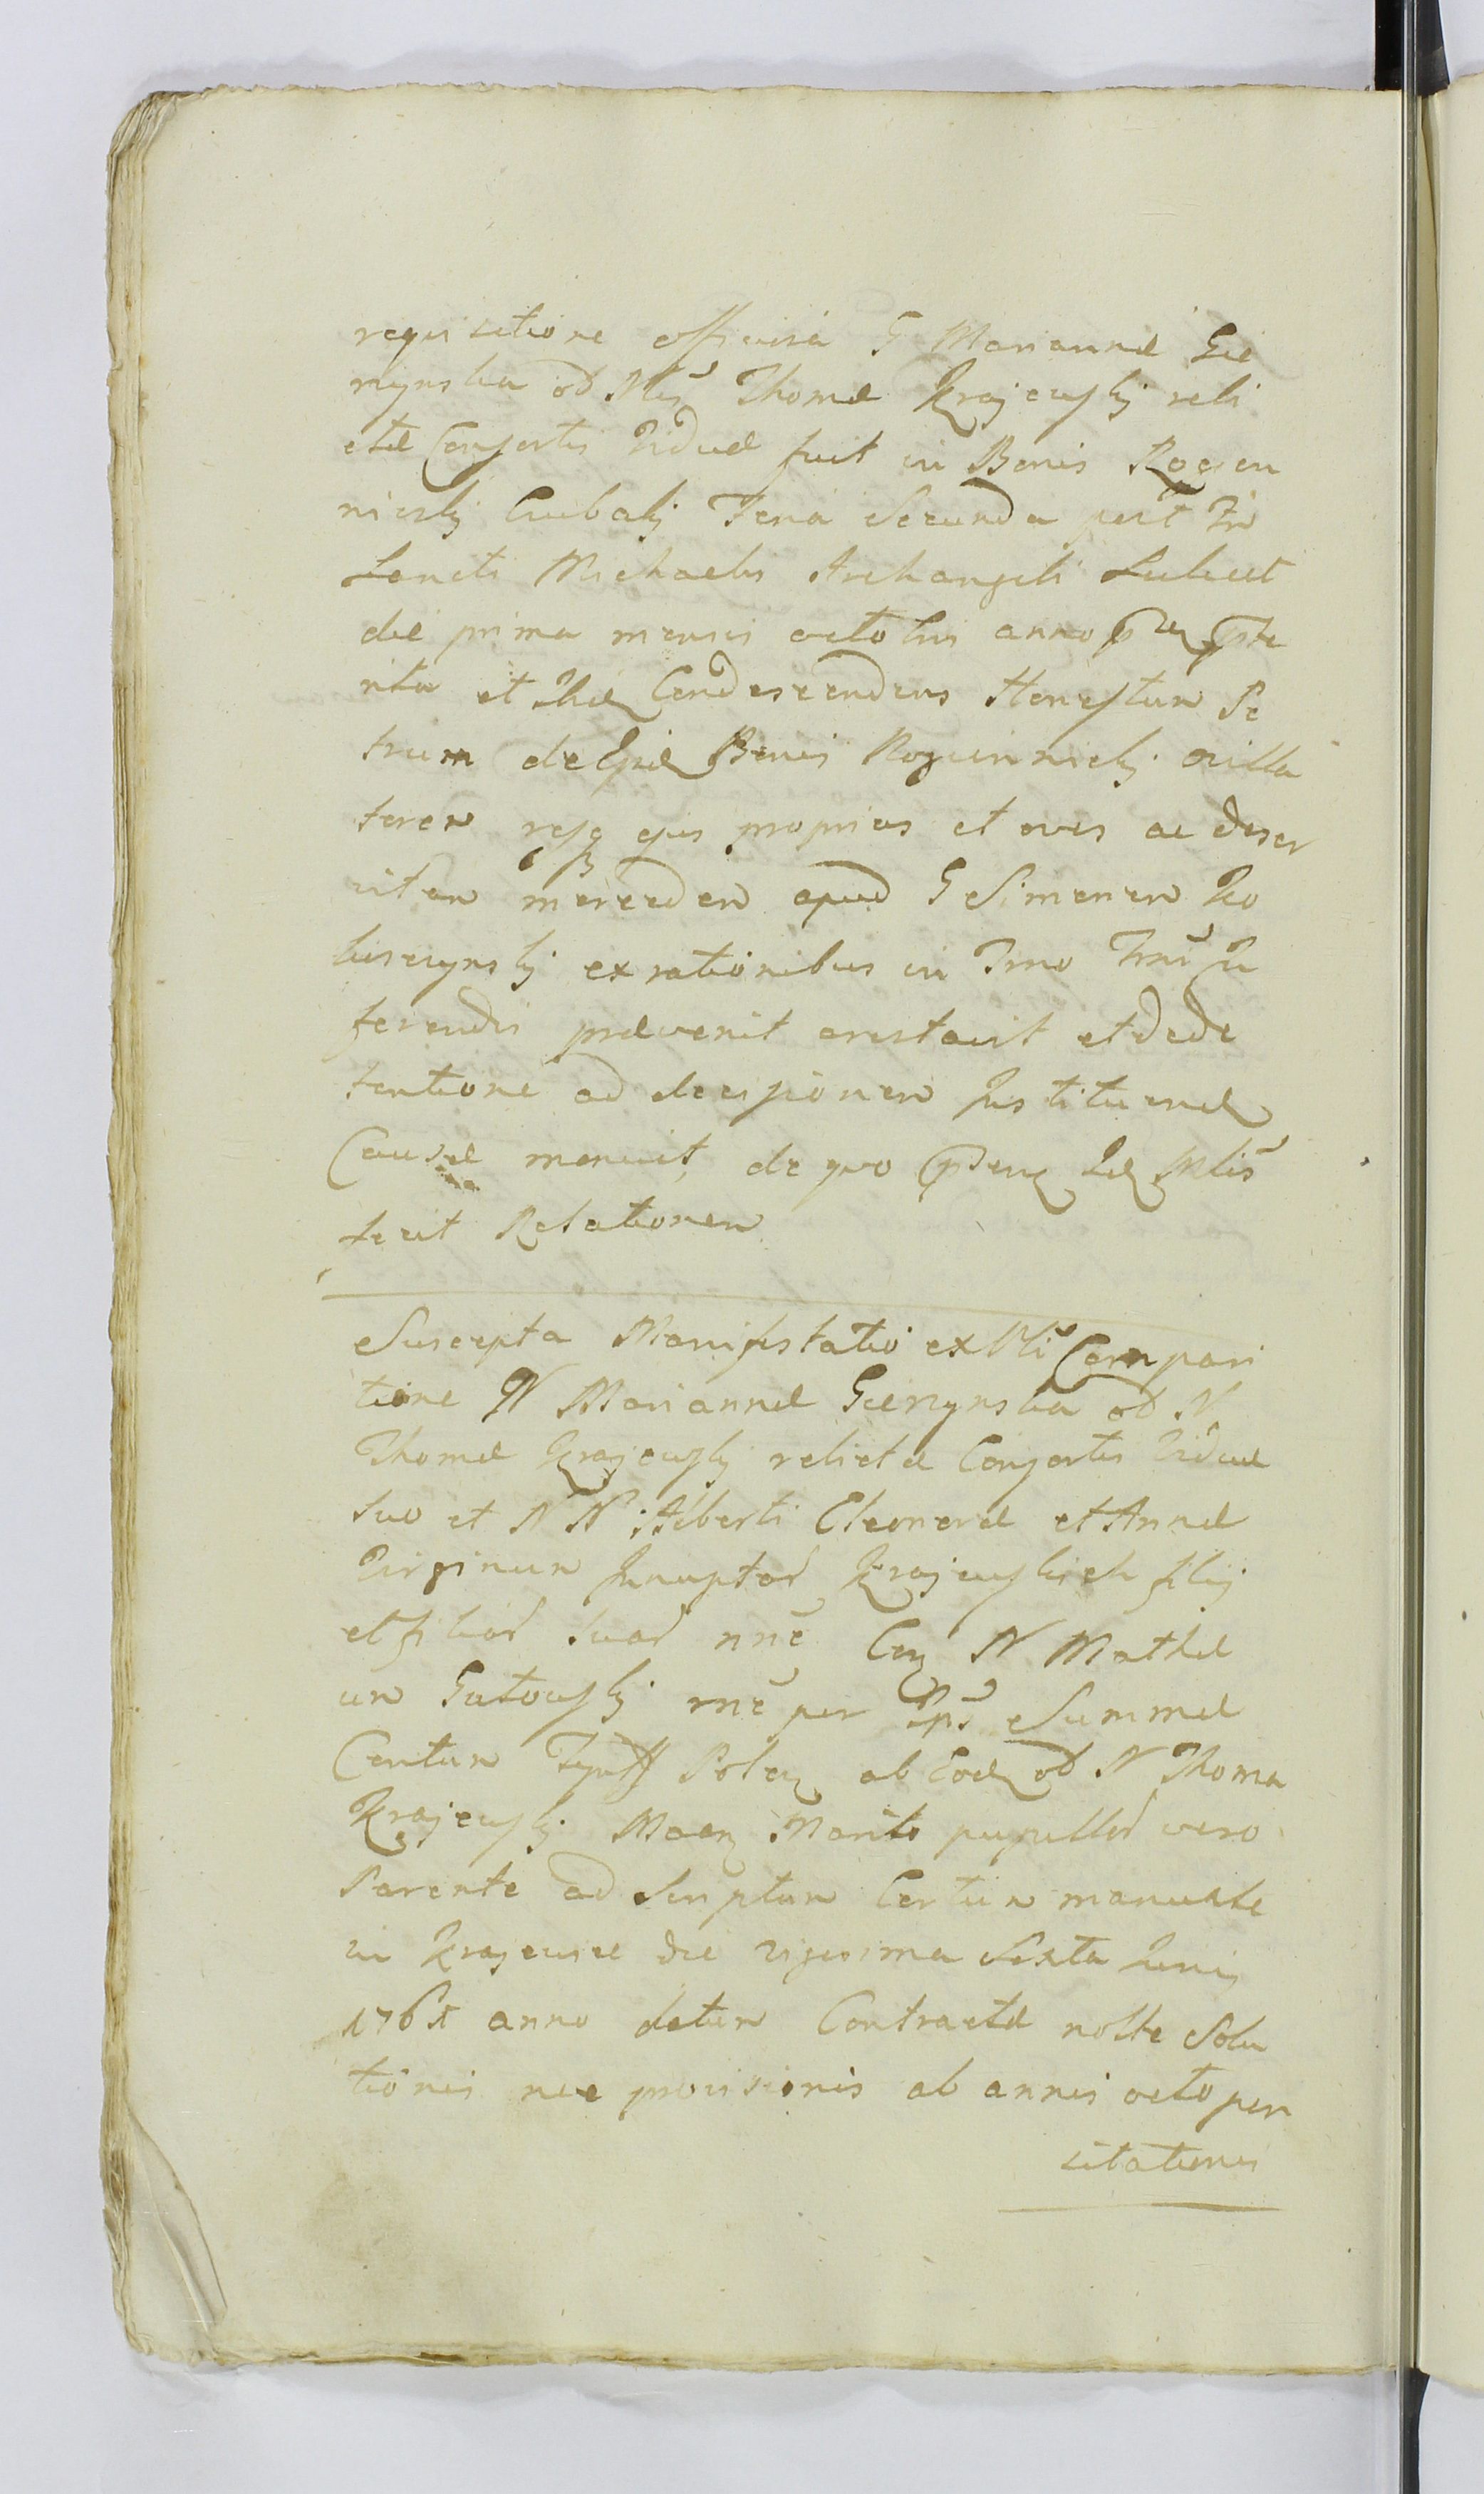 requisitione officiosa G Mariannæ Gie
rzynska od Nlis Thomæ Krajewskj reli
ctæ Consortis Viduæ fuit in Bonis Rogien
niczkj Feria Secunda post
Sancti Michaelis Archangeli Scilicet
die prima mensis octobris anno
rita et Condescendens Honestum Pe
trum de Bonis Roguinnickj
resq ejus proprias et oves ac deser
vitam mercedem apud G Simonem Ko
biszynskj ex rationibus in
ferendis prævenit arestavit et de de
tentione ad decisionem Instituend
Causæ monuit, de quo
fecit Relationem
Suscepta Manifestatio ex Compari
tione N Mariannæ Gierzynska od N
Thomæ Krajewskj relictæ Consortis Viduæ
suo et N N Alberti Eleonoræ et Annæ
Virginum Innuptar Krajewskich filij
et filiar suar nne Con N Mathæ
um Gutowskj rne per Summæ
Centum Tynff Polon ab Eod od N Thoma
Krajewskj Marito pupillor vero
Parente ad Scriptum Certum manuale
in Krajewice die vigesima Sexta Junij
1761 anno datum Contractæ nolle Solu
tionis nec provisionis ab annis octo pen
sitationis